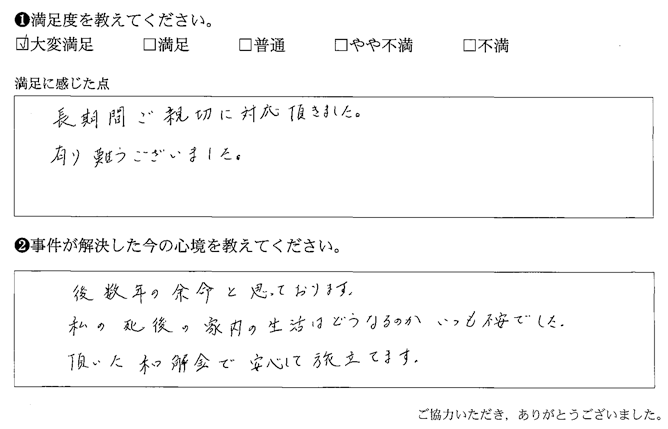 ❶満足度を教えてください。
☑大変満足 □満足 □普通 □やや不満 □不満
満足に感じた点
長期間ご親切に対応頂きました。
有り難うございました。
❷事件が解決した今の心境を教えてください。
後数年の余命と思っております。
私の死後の家内の生活はどうなるのかいつも不安でした。
頂いた和解金で安心して旅立てます。
ご協力いただき、ありがとうございました。